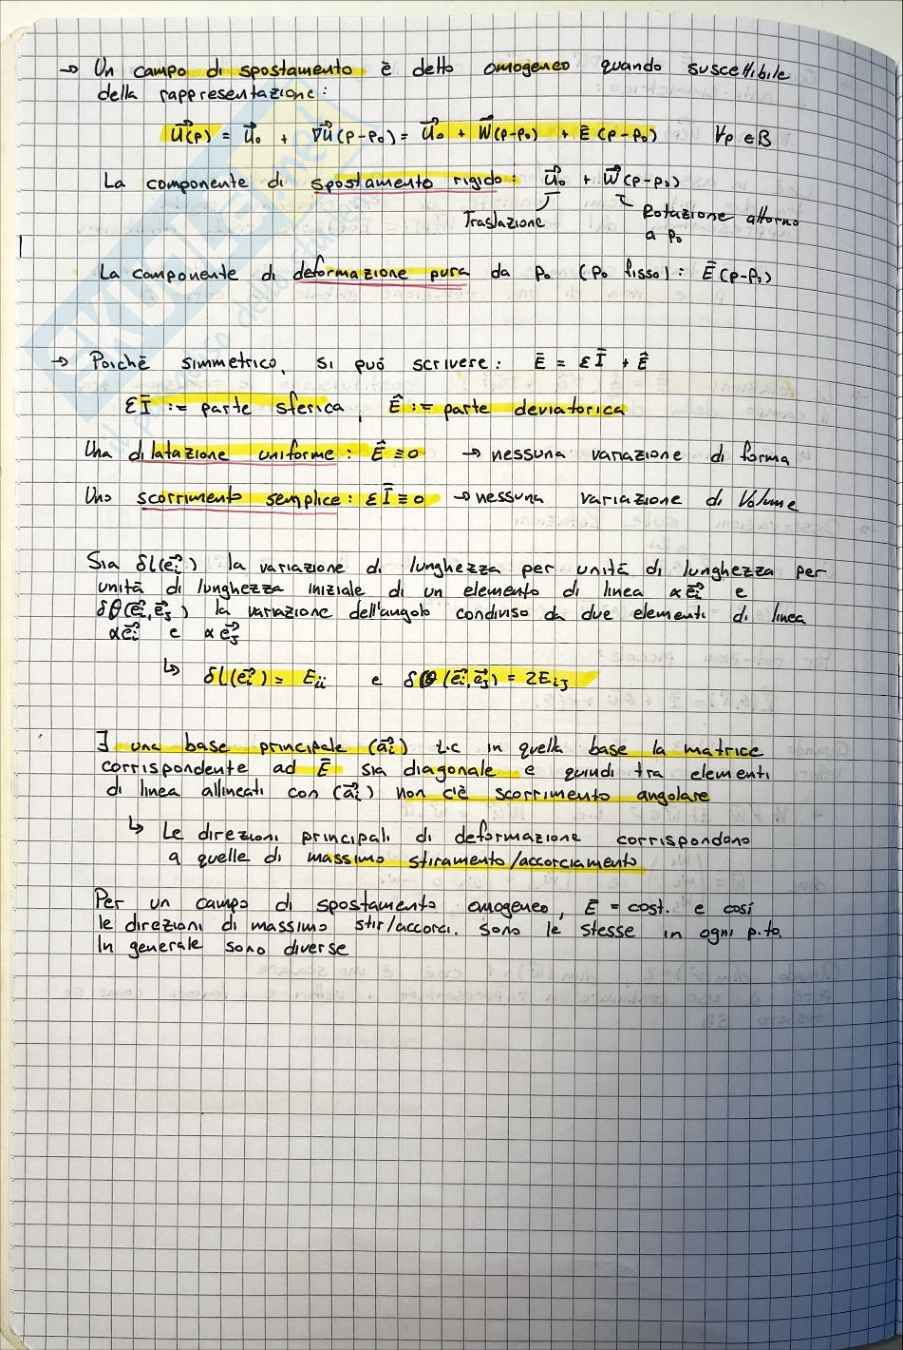 → Un campo di spostamento è detto omogeneo quando suscettibile
della rappresentazione:
u⃗(p) = u⃗₀ + ∇u⃗(p-p₀) = u⃗₀ + W⃗(p-p₀) + Ē(p-p₀) ∀p ∈ B
La componente di spostamento rigido: u⃗₀ + W⃗(p-p₀)
Traslazione
Rotazione attorno
a p₀
La componente di deformazione pura da p₀ (p₀ fisso): Ē(p-p₀)
→ Poiché simmetrico, si può scrivere: Ē = εĪ + Ê
εĪ := parte sferica, Ê := parte deviatorica
Una dilatazione uniforme: Ê ≡ 0 → nessuna variazione di forma
Uno scorrimento semplice: εĪ ≡ 0 → nessuna variazione di Volume
Sia δl(e⃗ᵢ) la variazione di lunghezza per unità di lunghezza per
unità di lunghezza iniziale di un elemento di linea αe⃗ᵢ e
δθ(e⃗ᵢ,e⃗ⱼ) la variazione dell'angolo condiviso da due elementi di linea
αe⃗ᵢ e αe⃗ⱼ
↳ δl(e⃗ᵢ) = Eᵢᵢ e δθ(e⃗ᵢ,e⃗ⱼ) = 2Eᵢⱼ
∃ una base principale (a⃗ᵢ) t.c in quella base la matrice
corrispondente ad Ē sia diagonale e quindi tra elementi
di linea allineati con (a⃗ᵢ) non c'è scorrimento angolare
↳ Le direzioni principali di deformazione corrispondono
a quelle di massimo stiramento/accorciamento
Per un campo di spostamento omogeneo, Ē = cost. e così
le direzioni di massimo stir/accorci. sono le stesse in ogni p.to.
In generale sono diverse